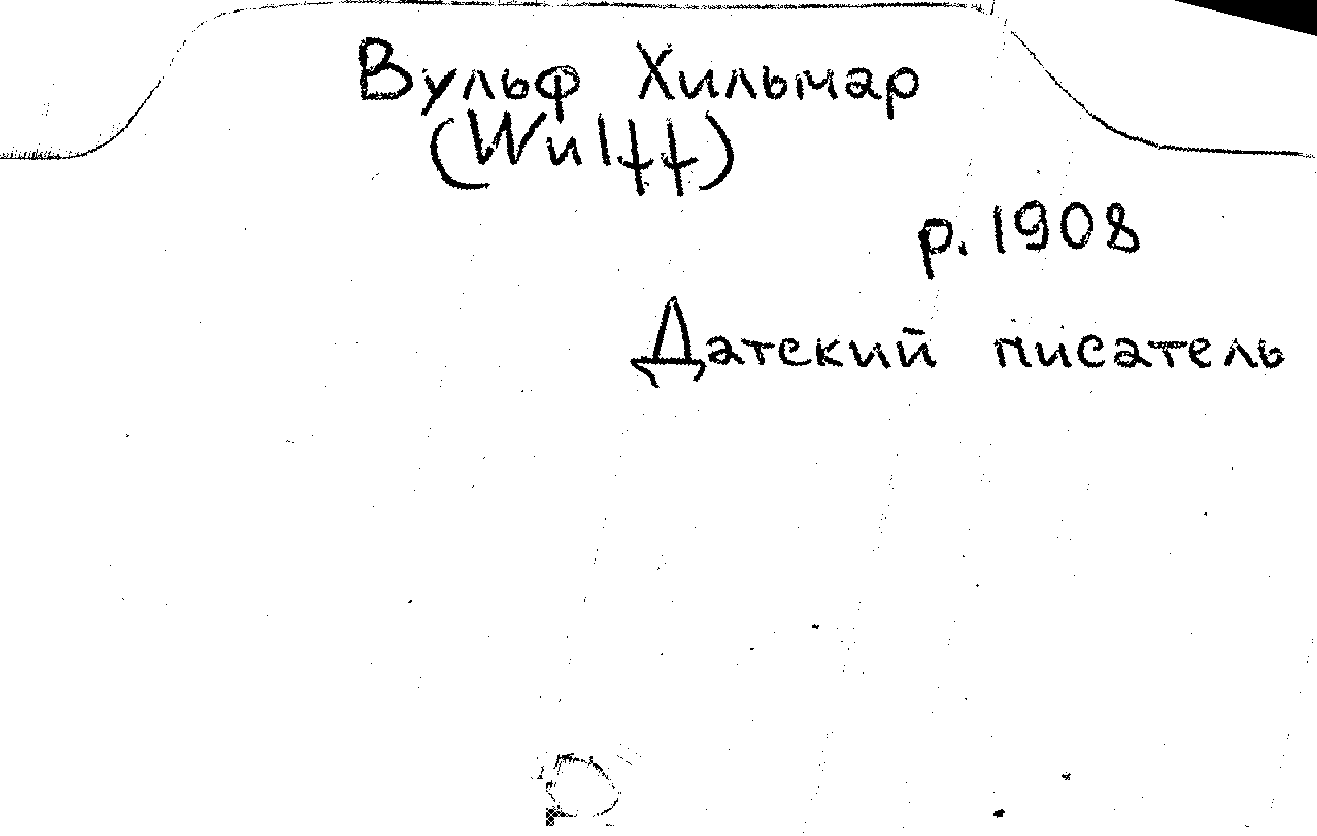 Вульф Хильмар
(Wulff)
р. 1908
Датский писатель